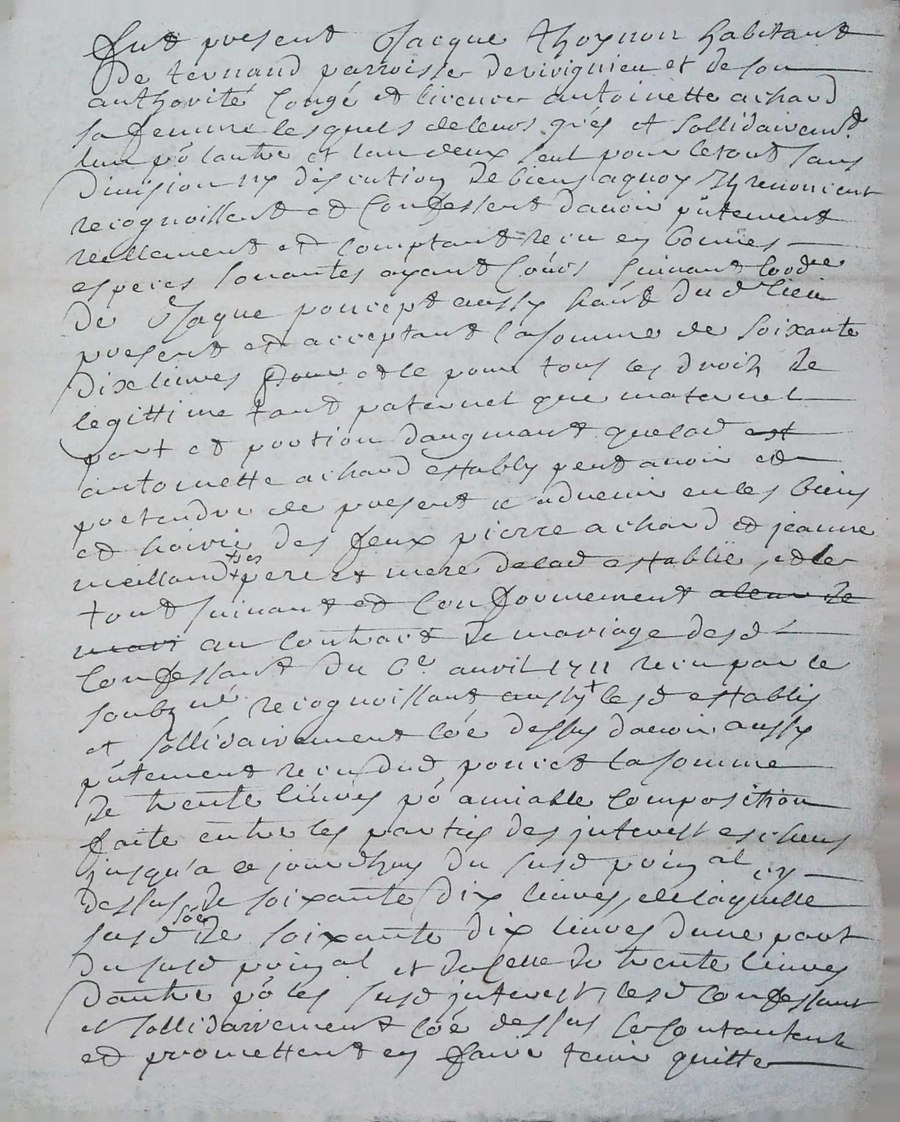 fut present Jacque thoynon habitant
De ternand parroisse de rivignieu et de son
authorité Congé et licence antoinette achard
sa femme lesquels de leurs grés et sollidairemt
lun po lautre et lun deux seul pour le tout sans
Division ny discution de biens a quoy Ils renoncent
recognoissent et Confessent davoir pntement
reellement et comptant receu en bonnes
especes sonnantes ayant Cours suivant lordre
De Jaque poncept aussy habt dud lieu
present et acceptant la somme de soixante
Dix livres pour et le pour tous les droits De
legittime tant paternel que maternel
part et portion daugmant que lad
antoinette achard establye peut avoir et
pretendre de present et advenir en les biens
et hoirie des feux pierre achard et jeanne
meilland ses pere et mere de lad establie, et le
tout suivant et Conformement a leur de
mari au Contract De mariage desd
Confessant Du 6e avril 1711 receu par le
soubzné recognoissant aussy lesd establis
et sollidairement Coe dessus davoir aussy
pntement receu dud poncet la somme
De trente livres po amiable Composition
faite entre les parties des interest escheus
jusqu'a ce jourdhuy du susd poinpal cy
dessus de soixante dix livres, de laquelle
susd soe De soixante dix livres dune part
Du susd prinpal et de celle de trente livres
Dautre po les susd interest, lesd Confessant
et sollidairement Coe dessus se Contantent
et promettent en faire tenir quitte